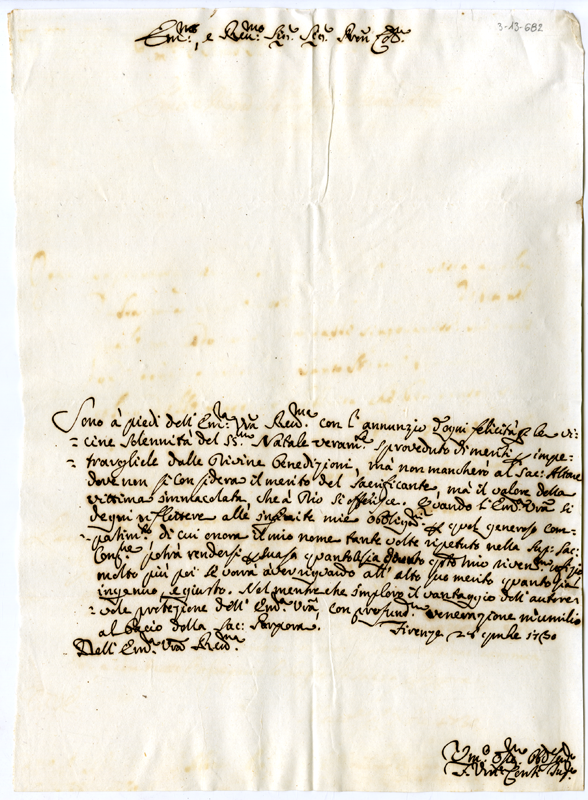 3-13-682
Em.mo, e Rev.mo Sig.r Sig.r Pron Col.mo
Sono à piedi dell'Em.za V.ra Rev.ma con l'annunzio d'ogni felicità p le vi-
cine Solennità del SS.mo Natale veram.te sproveduto di meriti p impe-
travgliele dalle Divine Benedizioni, mà non mancherò al Sac: Altare
dove non si considera il merito del Sacrificante, mà il valore della
vittima immacolata, che à Dio si offerisce. Quando l'Em.za V.ra si
degni riflettere alle infinite mie obbligaz.ni p quel generoso com-
patim.to di cui onora il mio nome tante volte ripetuto nella Sup: Sac:
potrà rendersi suasa quanto sia questo mio river.mo
molto più poi se vorrà aver riguardo all'alto suo merito quanto
inganno, e giusto. Nel mentre che imploro il vantaggio dell'autore-
vole protezione dell'Em.za V.ra, con profond.ma venerazione m'umilio
al Bacio della Sac: Porpora.
Firenze
Dell'Em.za V.ra Rev.ma